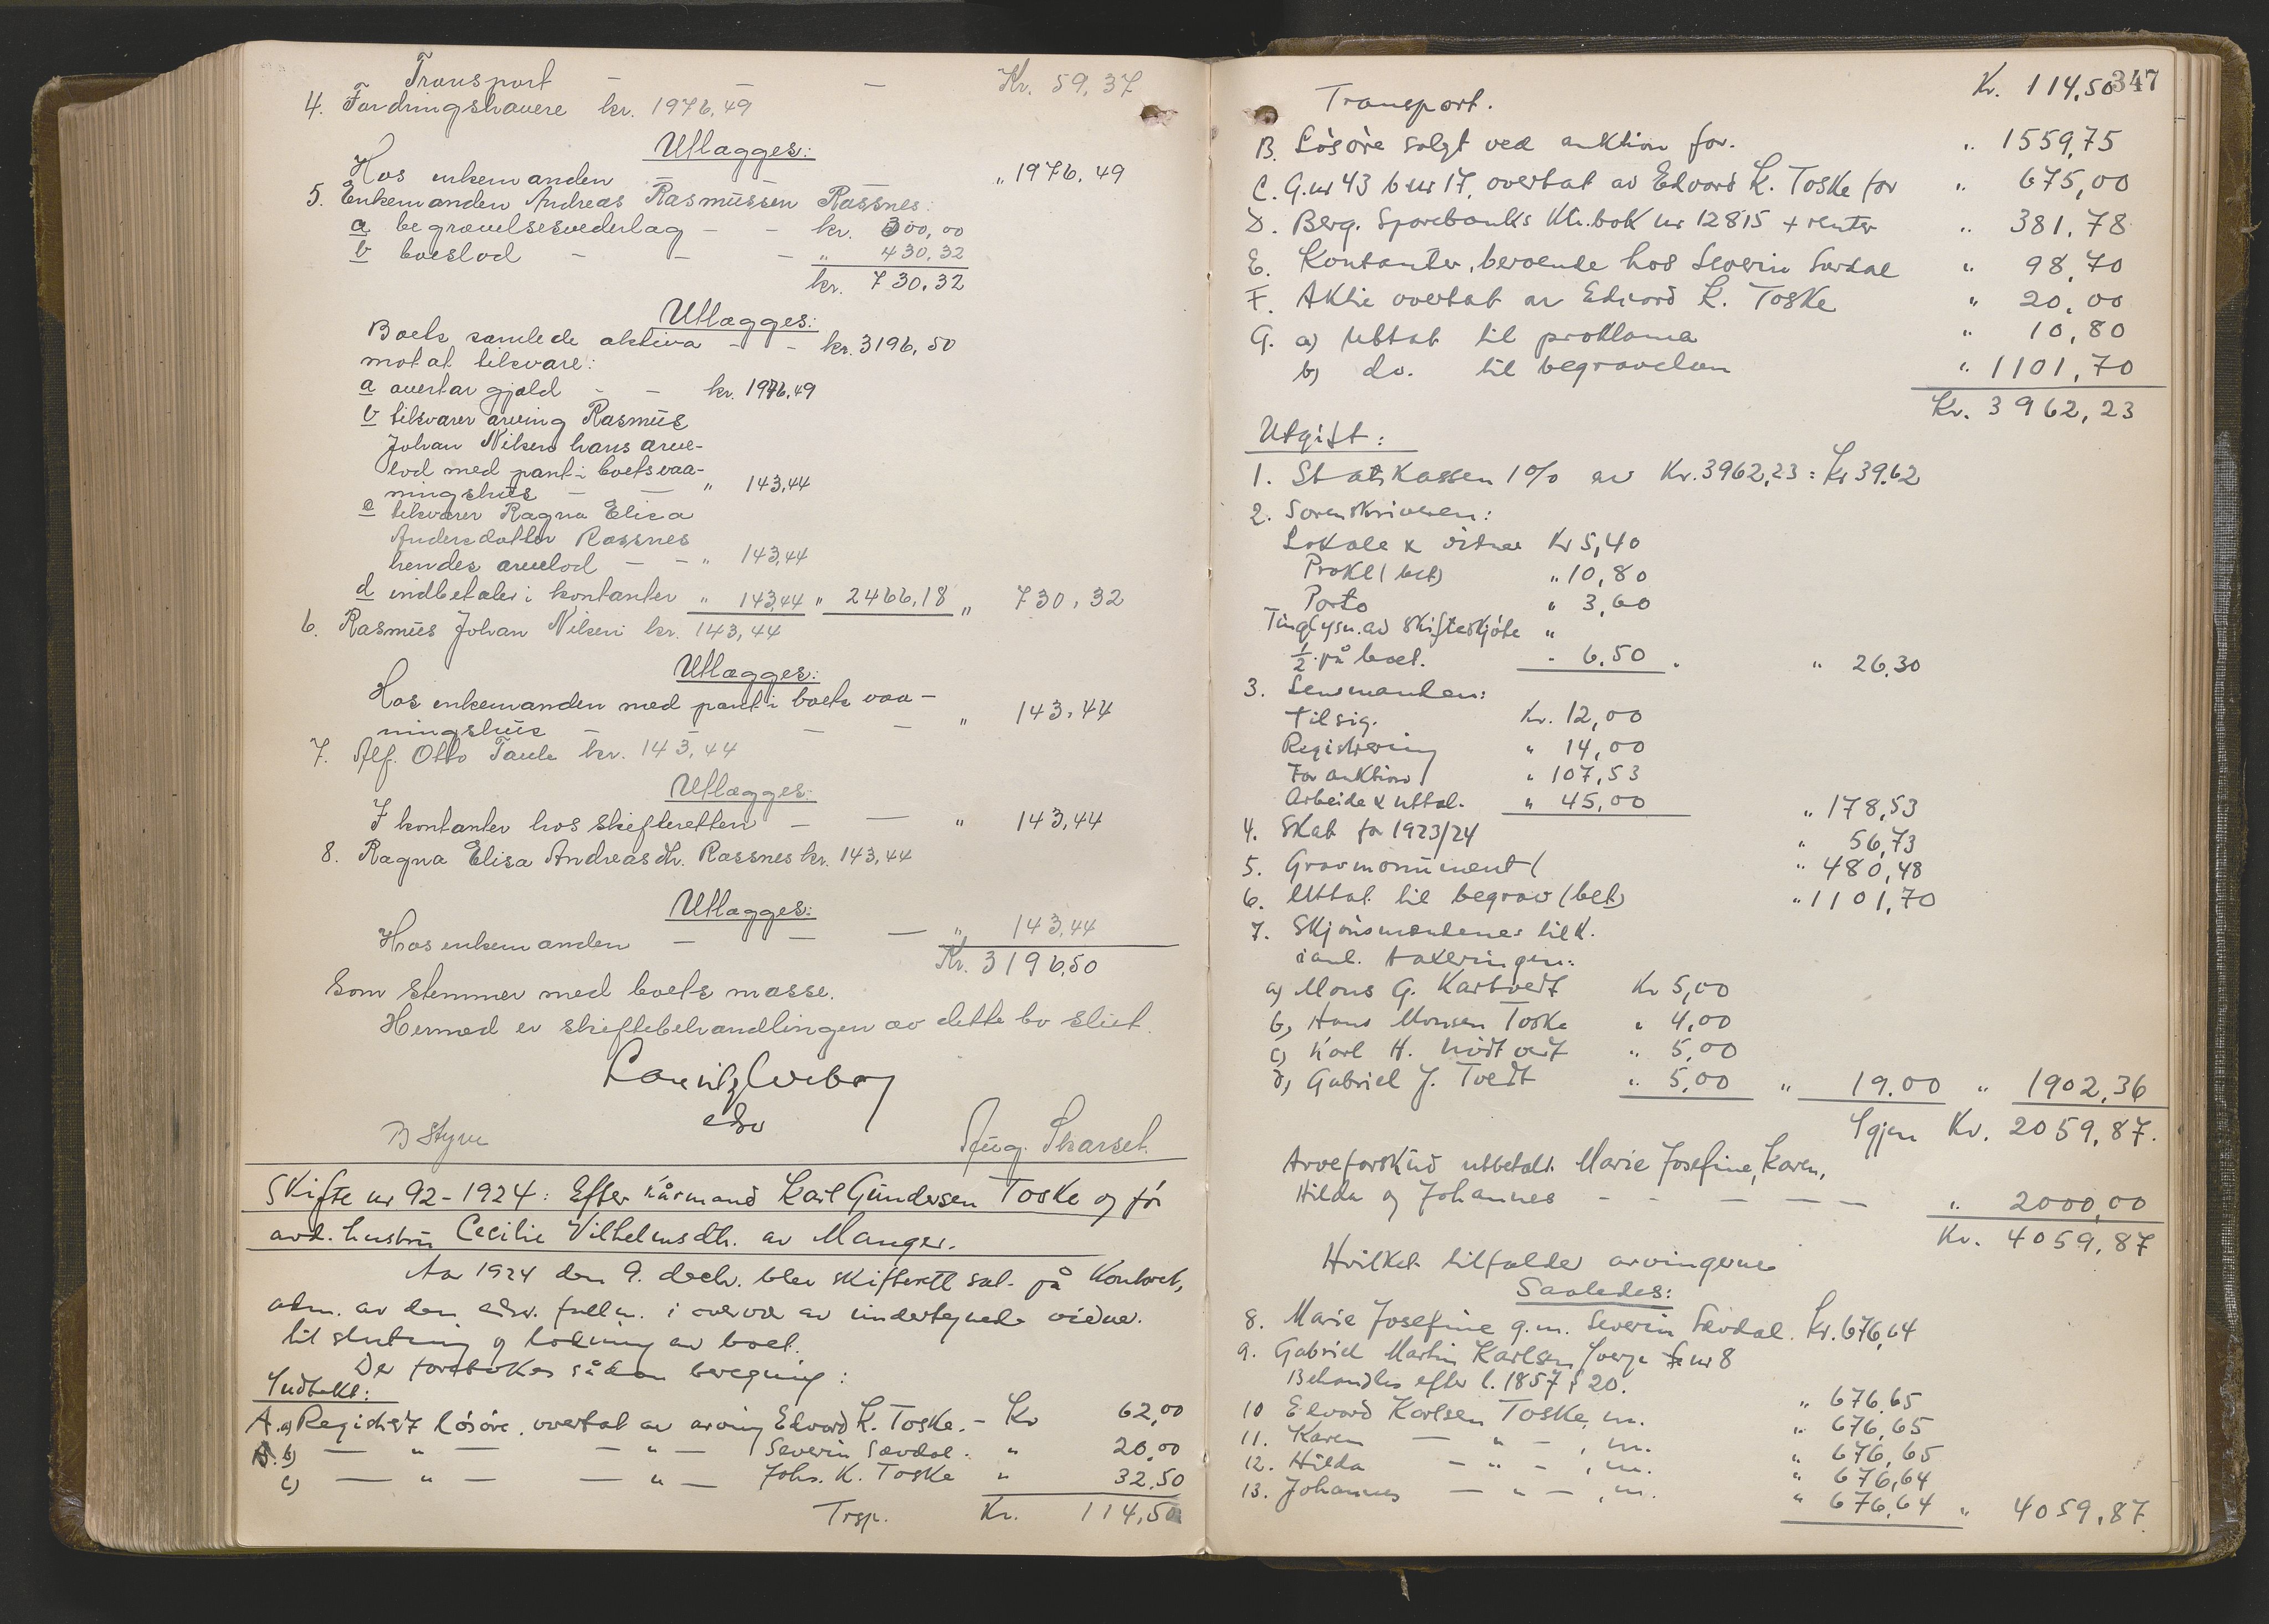 Transport — — — Kr. 59,37
4. Fordringshavere kr. 1976,49
Utlægges:
Hos enkemanden — — — „ 1976,49
5. Enkemanden Andreas Rasmussen Rossnes:
a begravelsesvederlag — — kr. 300,00
b boeslod — — — „ 430,32
kr. 730,32
Utlægges:
Boets samlede aktiva — — kr. 3196,50
mot at tilsvare:
a overtar gjæld — — kr. 1976,49
b tilsvarer arving Rasmus
Johan Nilsen hans arve-
lod med pant i boets vaa-
ningshus — — „ 143,44
c tilsvarer Ragna Elisa
Andersdatter Rossnes
hendes arvelod — — „ 143,44
d indbetaler i kontanter „ 143,44 „ 2466,18 „ 730,32
6. Rasmus Johan Nilsen kr. 143,44
Utlægges:
Hos enkemanden med pant i boets vaa-
ningshus — — — „ 143,44
7. Alf. Otto Taule kr. 143,44
Utlægges:
I kontanter hos skifteretten — — „ 143,44
8. Ragna Elisa Andreasdtr. Rossnes kr. 143,44
Utlægges:
Hos enkemanden — — — „ 143,44
Kr. 3196,50
Som stemmer med boets masse.
Hermed er skiftebehandlingen av dette bo slut.
edsv
B Styve Aug. Skarset.
Skifte nr 92-1924: Efter kårmand Karl Gundersen Toske og før
avd. hustru Cecilie Vilhelmsdtr. av Manger.
Aar 1924 den 9. decbr. blev skifterett sat på kontoret,
adm. av den edsv. fullm. i overvær av undertegnede vidne.
til slutning og lodning av boet.
Der foretokes sådan beregning:
Indtekt:
A. a) Registrert løsøre, overtat av arving Edvard K. Toske. — Kr 62,00
b) — „ — — „ — Severin Sævdal. „ 20,00
c) — „ — — „ — Johs. K. Toske „ 32,50
Trsp. Kr. 114,50
347
Transport. Kr. 114,50
B. Løsøre solgt ved auktion for. „ 1559,75
C. G.nr 43 b nr 17, overtat av Edvard K. Toske for „ 675,00
D. Berg. Sparebanks Ktr.bok nr 12815 + renter „ 381,78
E. Kontanter, beroende hos Severin Sævdal „ 98,70
F. Aktie overtat av Edvard K. Toske „ 20,00
G. a) Uttat til proklama „ 10,80
b) do. til begravelsen „ 1101,70
Kr. 3962,23
Utgift:
1. Statskassen 1% av Kr. 3962,23 = Kr 39.62
2. Sorenskriveren:
Lokale & vidner Kr 5,40
Prokl (bet) „ 10,80
Porto „ 3,60
Tinglysn. av skifteskjøte „
1/2 på boet. - 6.50 „ 26.30
3. Lensmanden:
tilsig. Kr. 12,00
Registrering „ 14,00
For auktion „ 107,53
Arbeide & uttal. „ 45,00 „ 178,53
4. Skat for 1923/24 „ 56,73
5. Gravmonument ( „ 480,48
6. Uttat til begrav (bet) „ 1101,70
7. Skjønsmændenes tilk.
i anl. takseringen:
a) Mons G. Kartveit Kr 5,00
b) Hans Monsen Toske „ 4,00
c) Karl H. „ 5,00
d) Gabriel J. Tvedt „ 5,00 „ 19.00 „ 1902,36
Igjen Kr. 2059,87.
Arveforskud utbetalt Marie Josefine, Karen,
Hilda og Johannes — — — — — „ 2000,00
Kr. 4059,87
Hvilket tilfalder arvingerne
Saaledes:
8. Marie Josefine g.m. Severin Sævdal. Kr. 676,64
9. Gabriel Martin Karlsen, nr 8
Behandles efter l. 1857 § 20. „ 676,65
10 Edvard Karlsen Toske, m. „ 676,65
11. Karen — „ — , m. „ 676,65
12. Hilda — „ — , m. „ 676,64
13. Johannes — „ — , m. „ 676,64 „ 4059,87.